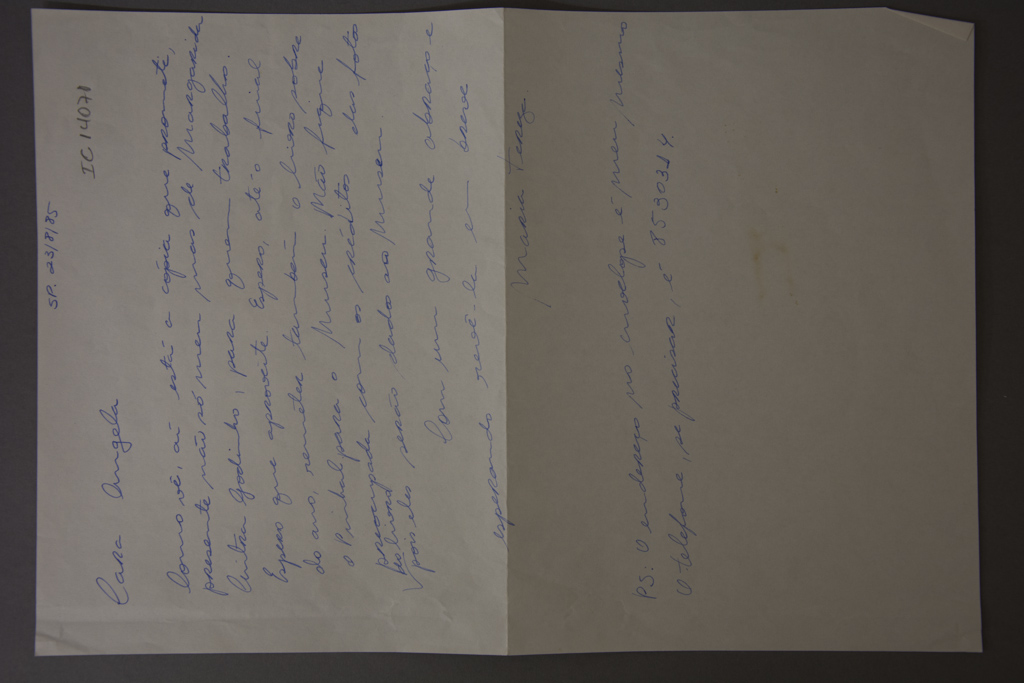 SP. 23/8/85
IC 14071
Cara Angela
Como vê, aí está a cópia que prometi,
presente não só meu mas de Margarida
Cintra Godinho, para quem trabalho.
Espero que aproveite. Espero, até o final
do ano, remeter também o livro sobre
o Pinhal para o Museu. Não fique
preocupada com os créditos das fotos
no livro
pois eles serão dados ao Museu.
Com um grande abraço e
esperando revê-la em breve
Maria Tereza
PS: O endereço no envelope é meu, mesmo
O telefone, se precisar, é 8530314.